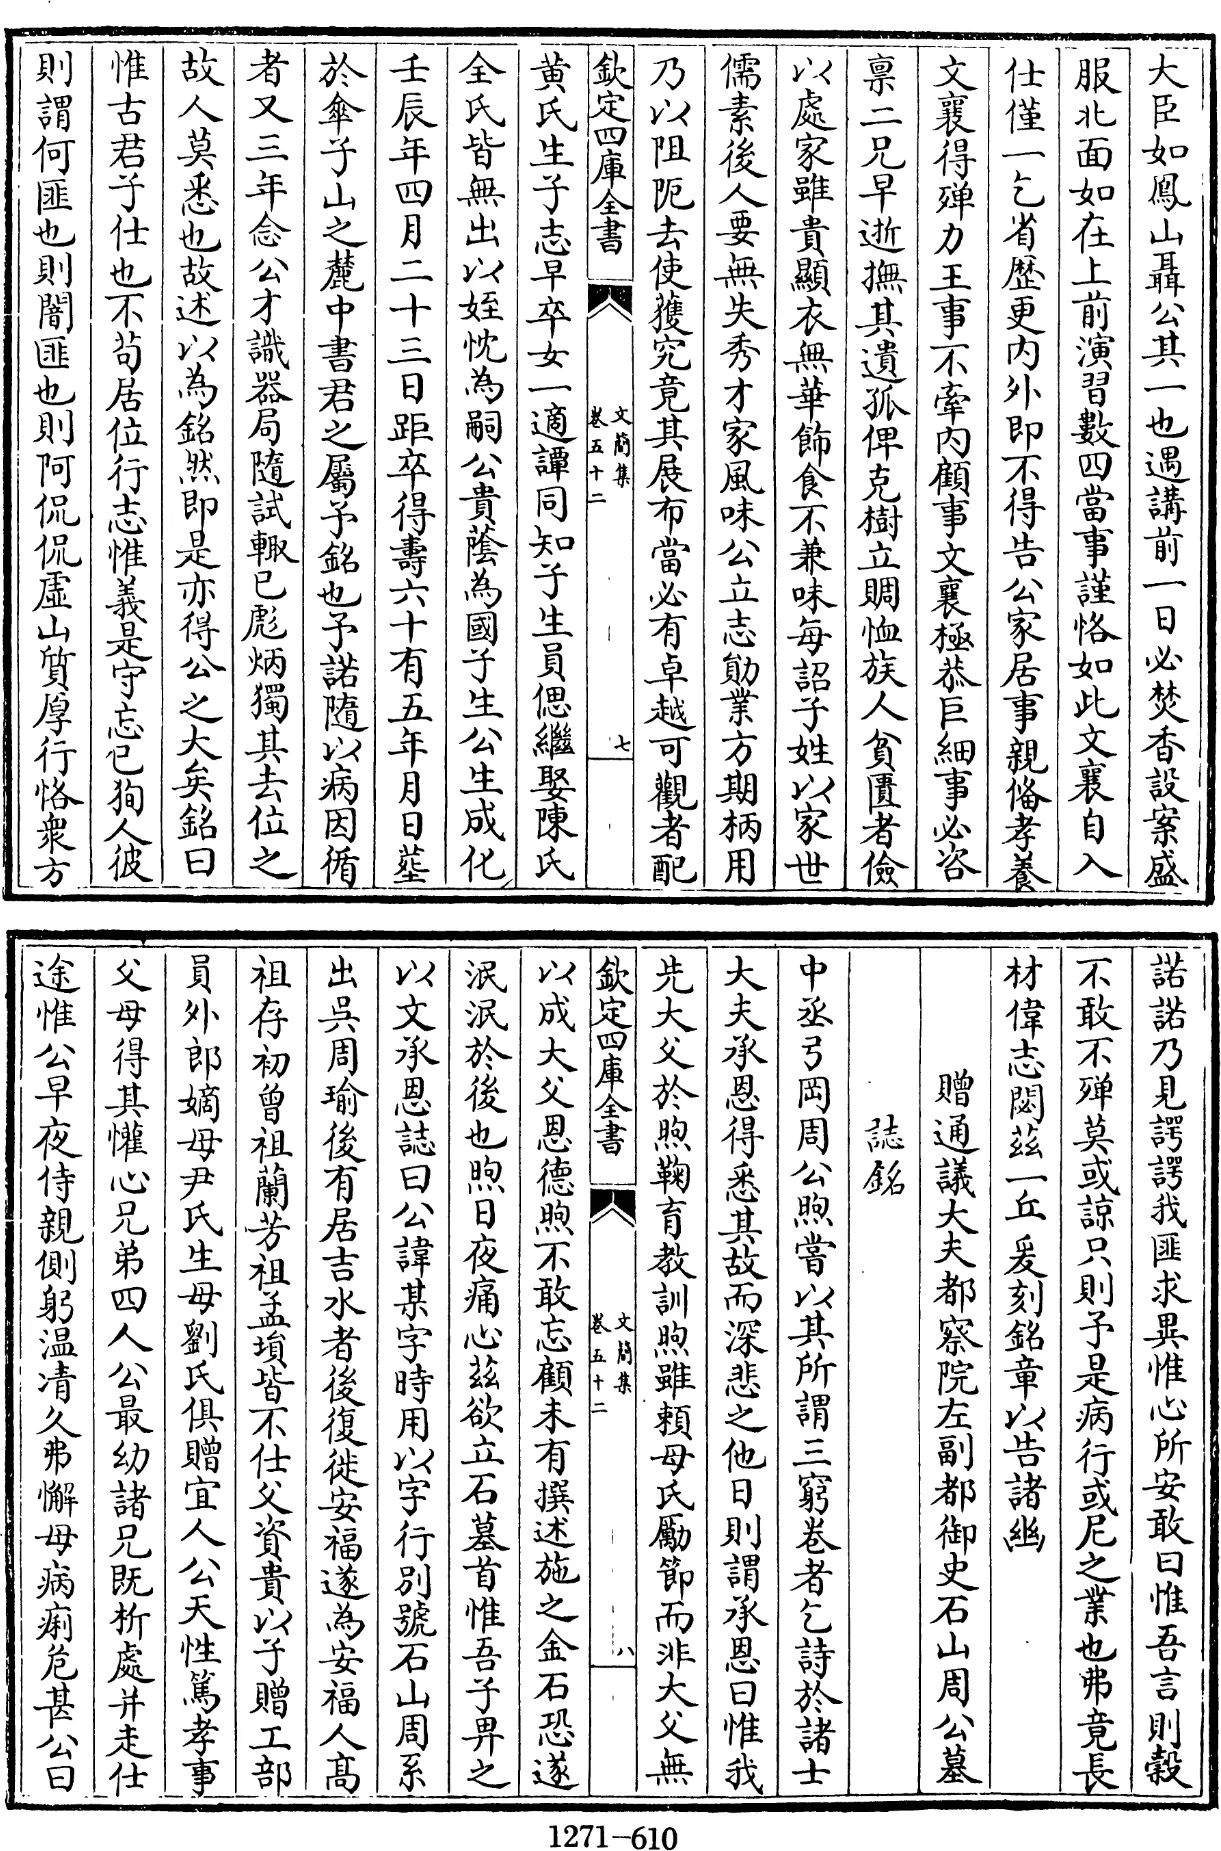 大臣如鳳山聶公其一也遇講前一日必焚香設案盛
服北面如在上前演習數四當事謹恪如此文襄自入
仕僅一乞省歷更内外即不得告公家居事親偹孝養
文襄得殫力王事不牽内顧事文襄極恭巨細事必咨
禀二兄早逝撫其遺孤俾克樹立賙恤族人貧匱者儉
以處家雖貴顯衣無華飾食不兼味每詔子姓以家世
儒素後人要無失秀才家風味公立志勛業方期柄用
乃以阻阨去使獲究竟其展布當必有卓越可觀者配
欽定四庫全書
文簡集
卷五十二
七
黄氏生子志早卒女一適譚同知子生員偲繼娶陳氏
全氏皆無出以姪忱為嗣公貴蔭為國子生公生成化
壬辰年四月二十三日距卒得壽六十有五年月日塟
於傘子山之麓中書君之屬予銘也予諾隨以病因循
者又三年念公才識器局隨試輙已彪炳獨其去位之
故人莫悉也故述以為銘然即是亦得公之大矣銘曰
惟古君子仕也不苟居位行志惟義是守忘己狥人彼
則謂何匪也則闇匪也則阿侃侃虛山質厚行恪衆方
諾諾乃見諤諤我匪求異惟心所安敢曰惟吾言則穀
不敢不殫莫或諒只則予是病行或尼之業也弗竟長
材偉志閟兹一丘爰刻銘章以告諸幽
贈通議大夫都察院左副都御史石山周公墓
誌銘
中丞弓岡周公煦嘗以其所謂三窮卷者乞詩於諸士
大夫承恩得悉其故而深悲之他日則謂承恩曰惟我
先大父於煦鞠育教訓煦雖頼母氏勵節而非大父無
欽定四庫全書
文簡集
卷五十二
八
以成大父恩德煦不敢忘顧未有撰述施之金石恐遂
泯泯於後也煦日夜痛心兹欲立石墓首惟吾子畀之
以文承恩誌曰公諱某字時用以字行别號石山周系
出吳周瑜後有居吉水者後復徙安福遂為安福人高
祖存初曾祖蘭芳祖孟塤皆不仕父資貴以子贈工部
員外郎嫡母尹氏生母劉氏俱贈宜人公天性篤孝事
父母得其懽心兄弟四人公最幼諸兄既析處并走仕
途惟公早夜侍親側躬温凊久弗懈母病痢危甚公曰
1271-610